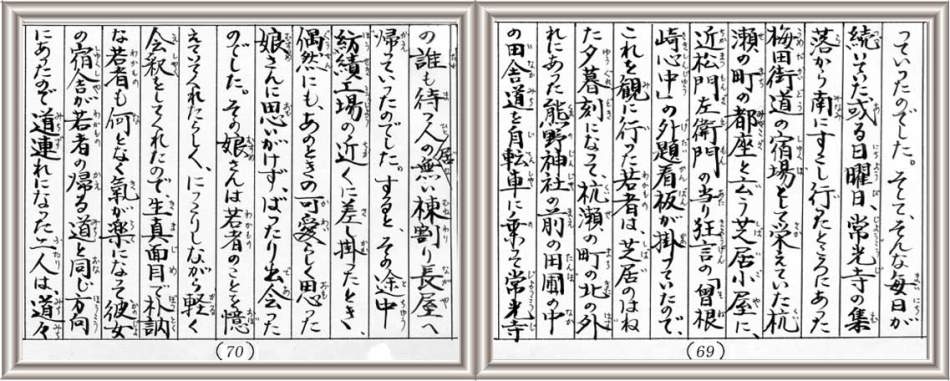 っていったのでした。そして、そんな毎日が
続いていた或る日曜日、常光寺の集
落から南にすこし行ったところにあった
梅田街道の宿場として栄えていた杭
瀬の町の都座と云う芝居小屋に、
近松門左衛門の当り狂言の「曽根
崎心中」の外題看板が掛っていたので、
これを観に行った若者は、芝居のはね
た夕暮刻になって、杭瀬の町の北の外
れにあった熊野神社の前の田圃の中
の田舎道を自転車に乗って常光寺
(69)
の誰も待つ人の居無い棟割り長屋へ
帰っていったのでした。すると、その途中
紡績工場の近くに差し掛ったとき、
偶然にも、あのときの可愛らしく思った
娘さんに思いがけず、ばったり出会った
のでした。その娘さんは若者のことを憶
えていてくれたらしく、にっこりしながら軽く
会釈をしてくれたので生真面目で朴訥
な若者も何となく氣が楽になって彼女
の宿舎が若者の帰る道と同じ方向
にあったので道連れになった二人は、道々
(70)